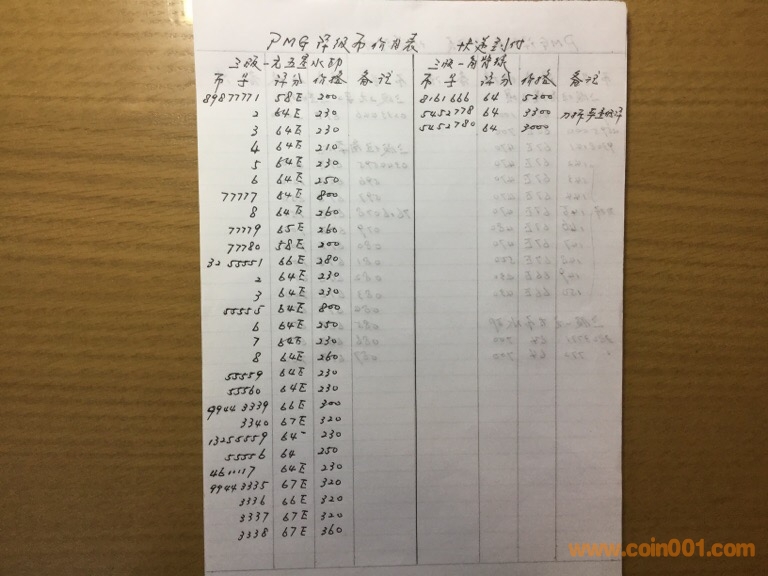 PMG评级币价目表 快递到付
三版一元五星水印
币号 评分 价格 备注
89877771 58E 200
2 64E 230
3 64E 230
4 64E 210
5 64E 230
6 64E 250
77777 64E 800
8 64E 260
77779 65E 260
77780 58E 200
32 55551 66E 280
2 64E 230
3 64E 230
55555 64E 800
6 64E 250
7 64E 230
8 64E 260
55559 64E 230
55560 64E 230
99443339 66E 300
3340 67E 320
13255559 64 230
55556 64 250
4611117 64E 230
99443335 67E 320
3336 66E 320
3337 67E 320
3338 67E 360
三版一角背绿
币号 评分 价格 备注
8161666 64 5200
5452778 64 3300
5452780 64 3000
www.coin001.com